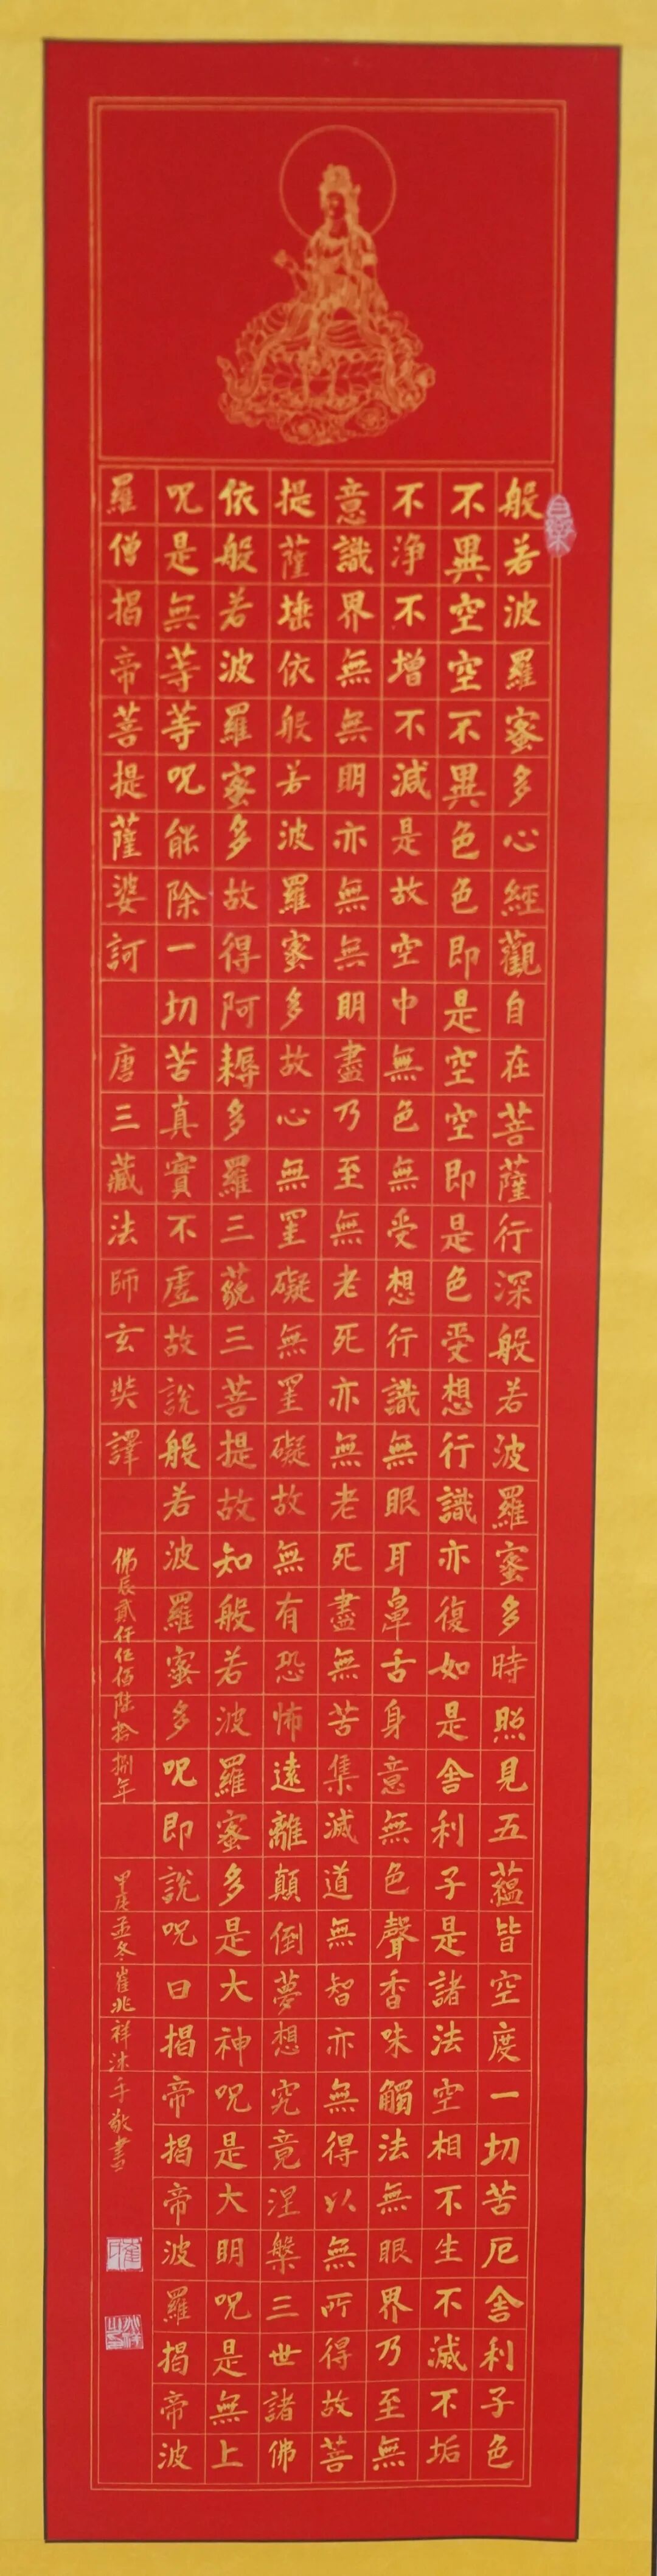 般若波羅蜜多心經觀自在菩薩行深般若波羅蜜多時照見五蘊皆空度一切苦厄舍利子色
不異空空不異色色即是空空即是色受想行識亦復如是舍利子是諸法空相不生不滅不垢
不淨不增不減是故空中無色無受想行識無眼耳鼻舌身意無色聲香味觸法無眼界乃至無
意識界無無明亦無無明盡乃至無老死亦無老死盡無苦集滅道無智亦無得以無所得故菩
提薩埵依般若波羅蜜多故心無罣礙無罣礙故無有恐怖遠離顛倒夢想究竟涅槃三世諸佛
依般若波羅蜜多故得阿耨多羅三藐三菩提故知般若波羅蜜多是大神呪是大明呪是無上
呪是無等等呪能除一切苦真實不虛故說般若波羅蜜多呪即說呪曰揭帝揭帝波羅揭帝波
羅僧揭帝菩提薩婆訶 唐三藏法師玄奘譯 佛辰貳仟伍佰陸拾捌年 甲辰孟冬崔兆祥沐手敬書